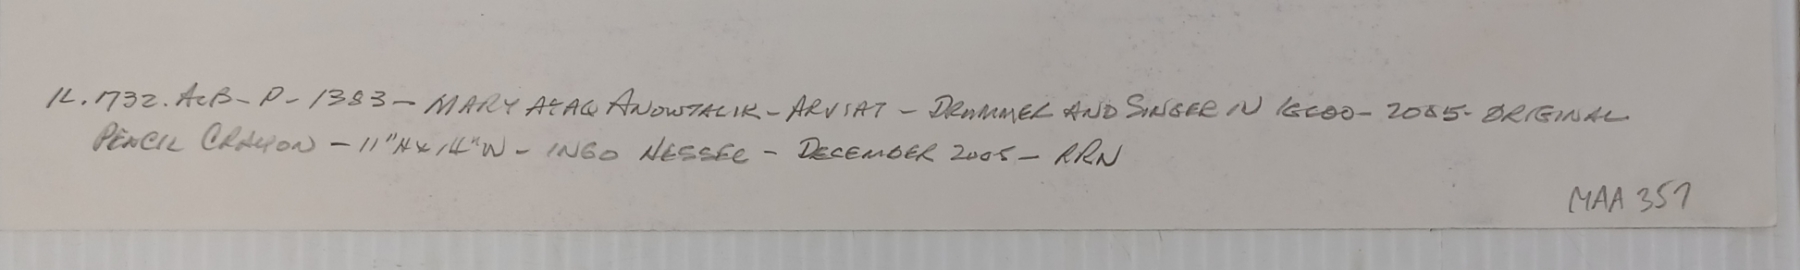 IL.1732.ACB-P-1383-MARY AYAQ ANOWTALIK-ARVIAT-DRUMMER AND SINGER IN IGLOO-2005-ORIGINAL
PENCIL CRAYON-11"H x 14"W-INGO HESSEL-DECEMBER 2005-RRN
MAA 357